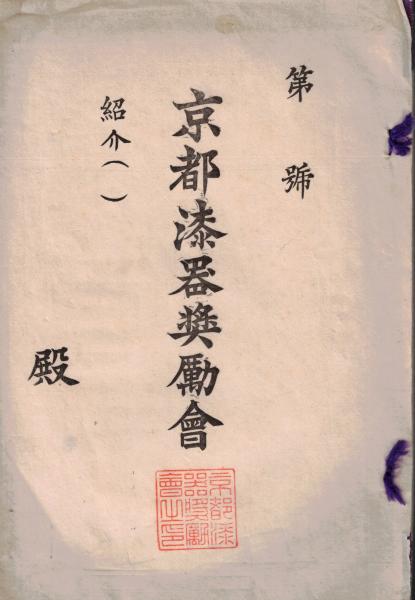 第 號
京都漆器奨勵會
紹介( )
殿
京都漆
器奨勵
會之印